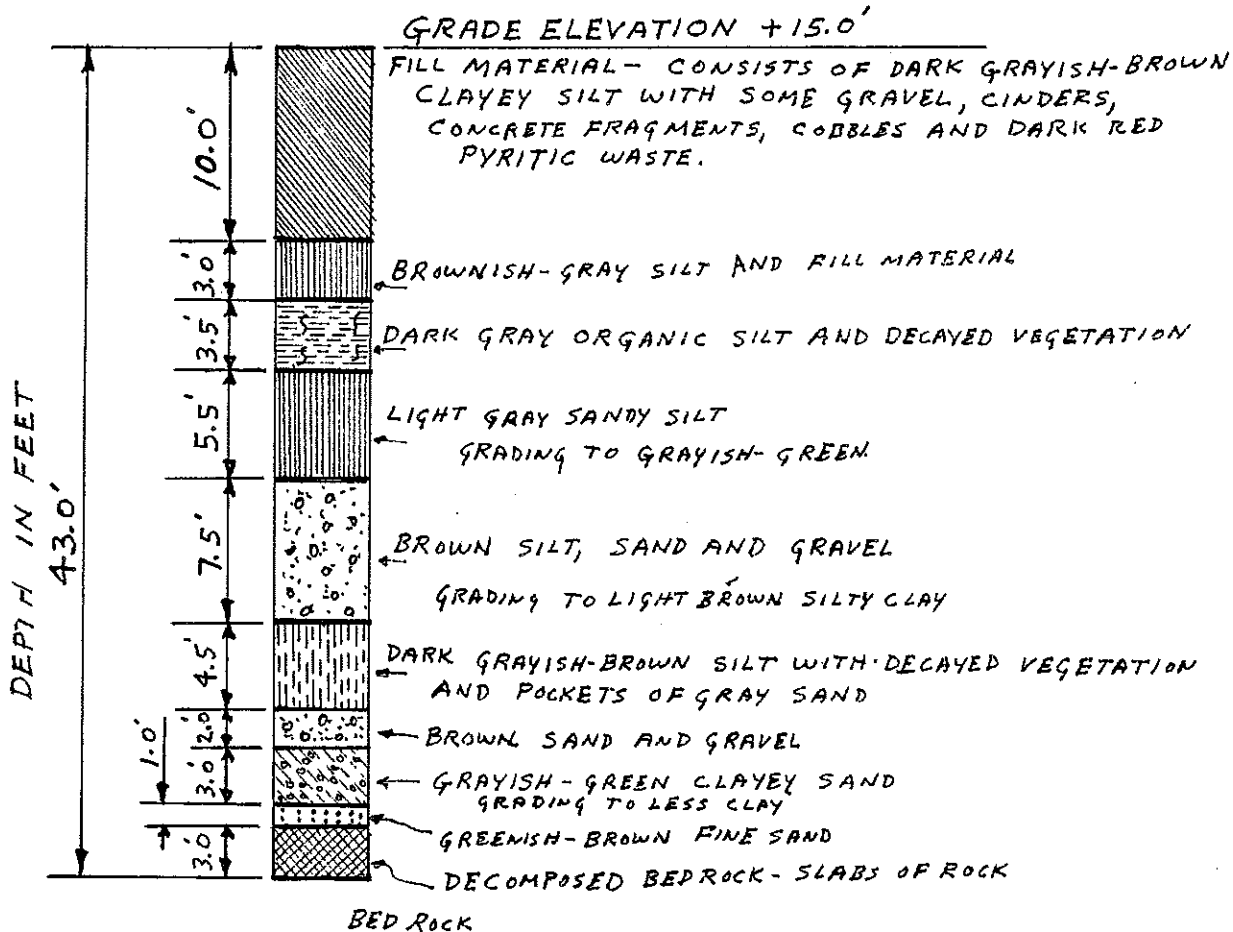 GRADE ELEVATION +15.0'
FILL MATERIAL- CONSISTS OF DARK GRAYISH-BROWN
CLAYEY SILT WITH SOME GRAVEL, CINDERS,
CONCRETE FRAGMENTS, COBBLES AND DARK RED
PYRITIC WASTE.
10.0'
3.0'
BROWNISH-GRAY SILT AND FILL MATERIAL
3.5'
DARK GRAY ORGANIC SILT AND DECAYED VEGETATION
5.5'
LIGHT GRAY SANDY SILT
GRADING TO GRAYISH-GREEN
DEPTH IN FEET
43.0'
7.5'
BROWN SILT, SAND AND GRAVEL
GRADING TO LIGHT BROWN SILTY CLAY
4.5'
DARK GRAYISH-BROWN SILT WITH DECAYED VEGETATION
AND POCKETS OF GRAY SAND
2.0'
BROWN SAND AND GRAVEL
3.0'
GRAYISH-GREEN CLAYEY SAND
GRADING TO LESS CLAY
1.0'
GREENISH-BROWN FINE SAND
3.0'
DECOMPOSED BEDROCK- SLABS OF ROCK
BED ROCK